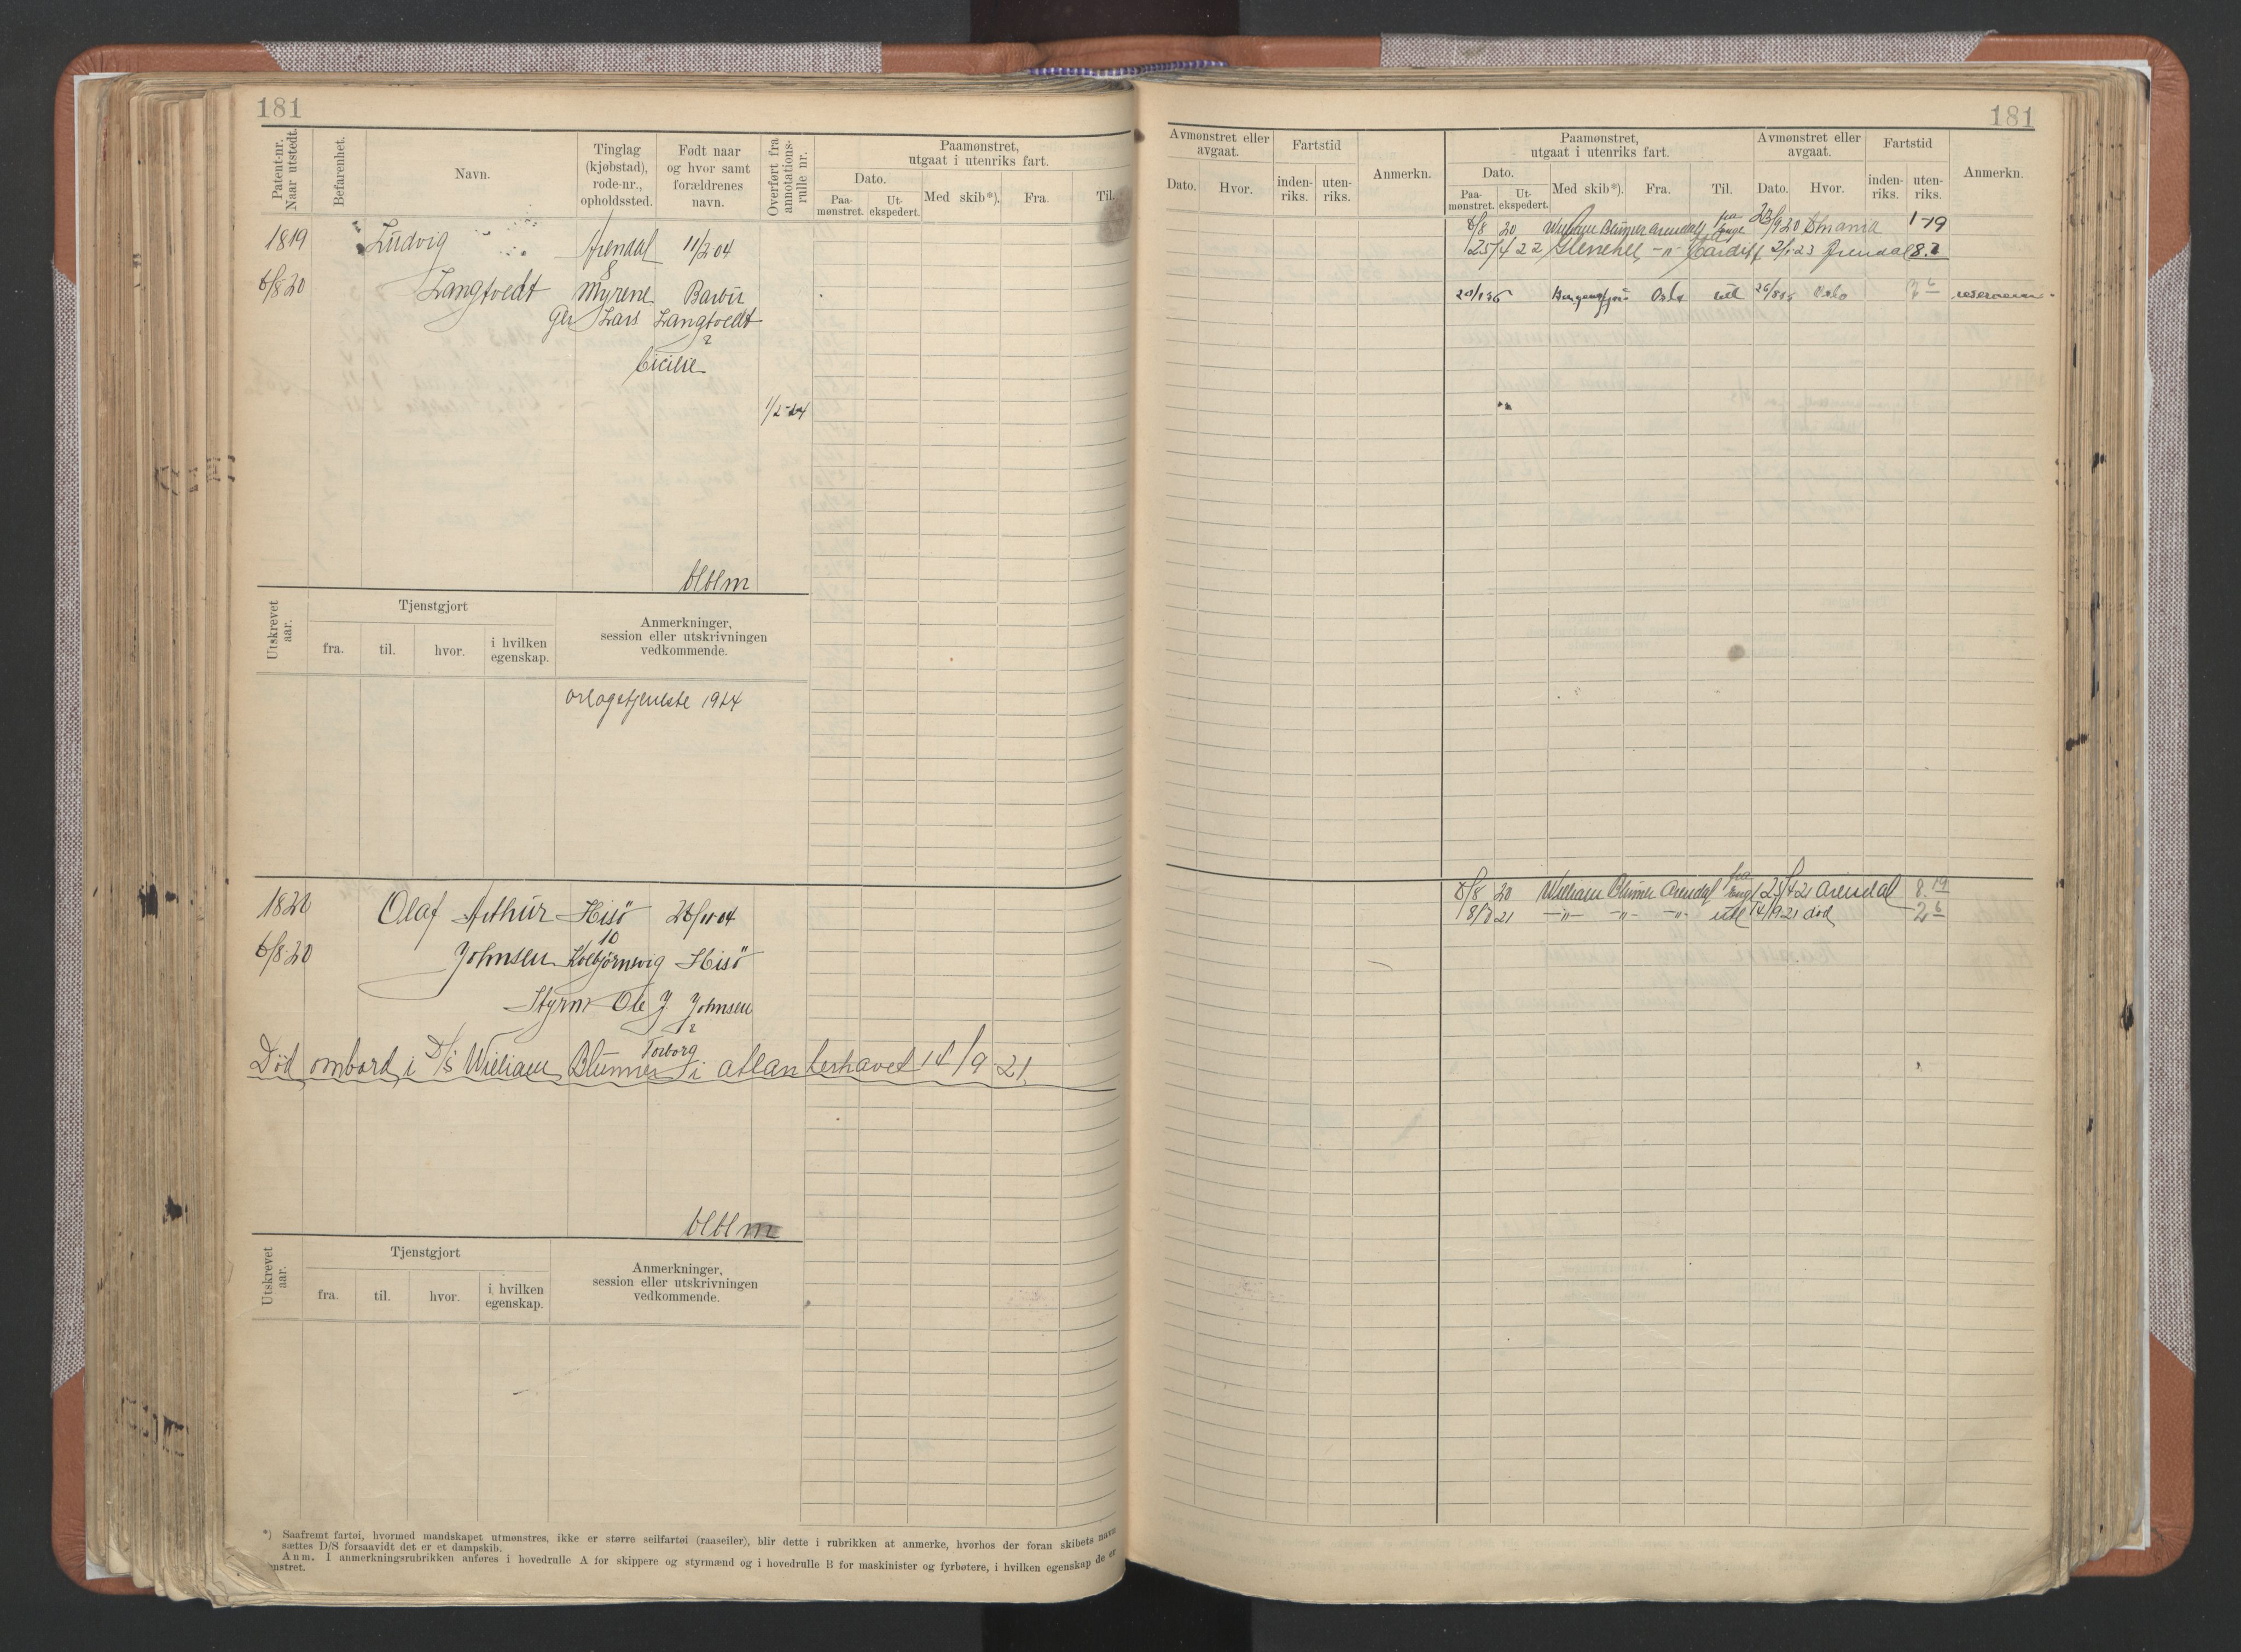 181
Patent-nr. Naar utstedt.
Befarenhet.
Navn.
Tinglag (kjøbstad), rode-nr., opholdssted.
Født naar og hvor samt forældrenes navn.
Overført fra annotations-rulle nr.
Paamønstret, utgaat i utenriks fart.
Dato.
Paa-mønstret.
Ut-ekspedert.
Med skib*).
Fra.
Til.
1819 Ludvig Arendal 11/2 04
8
6/8 20 Langtvedt Myrene Barbu
Lars Langtvedt
Cicilie
1/2-24
Utskrevet aar.
Tjenstgjort
fra.
til.
hvor.
i hvilken egenskap.
Anmerkninger, session eller utskrivningen vedkommende.
orlogstjeneste 1924
1820 Olaf Arthur Hisö
10
6/8 20 Johnsen Kolbjörnsvig Hisö
Styrm Ole J. Johnsen
Torborg
Död ombord i D/S William Blumer i atlanterhavet 14/9 21
Utskrevet aar.
Tjenstgjort
fra.
til.
hvor.
i hvilken egenskap.
Anmerkninger, session eller utskrivningen vedkommende.
*) Saafremt fartøi, hvormed mandskapet utmønstres, ikke er større seilfartøi (raaseiler), blir dette i rubrikken at anmerke, hvorhos der foran skibets navn
sættes D/S forsaavidt det er et dampskib.
Anm. I anmerkningsrubrikken anføres i hovedrulle A for skippere og styrmænd og i hovedrulle B for maskinister og fyrbøtere, i hvilken egenskap de er
nstret.
181
Avmønstret eller avgaat.
Dato.
Hvor.
Fartstid
inden-riks.
uten-riks.
Anmerkn.
Paamønstret, utgaat i utenriks fart.
Dato.
Paa-mønstret.
Ut-ekspedert.
Med skib*).
Fra.
Til.
Avmønstret eller avgaat.
Dato.
Hvor.
Fartstid
inden-riks.
uten-riks.
Anmerkn.
6/8 20 William Blumer Arendal 23/9 20 1-19
25/4 22 Glenehel -"- Cardiff 2/1 23 Arendal
Oslo utl Oslo
6/8 20 William Blumer Arendal 21 Arendal 8.19
21 -"- -"- -"- utl 14/9 21 död 2 6